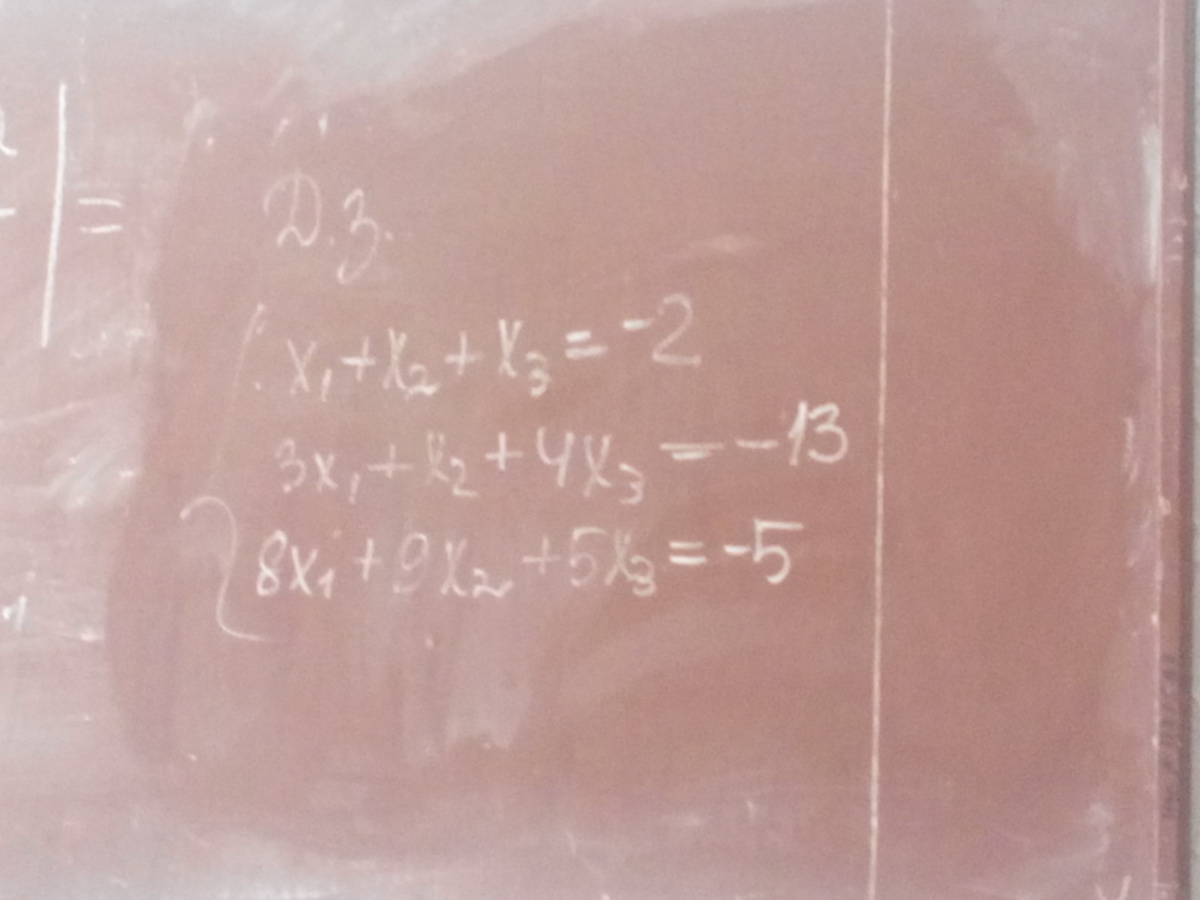 =
Д.з.
x₁+x₂+x₃=-2
3x₁+x₂+4x₃=-13
8x₁+9x₂+5x₃=-5